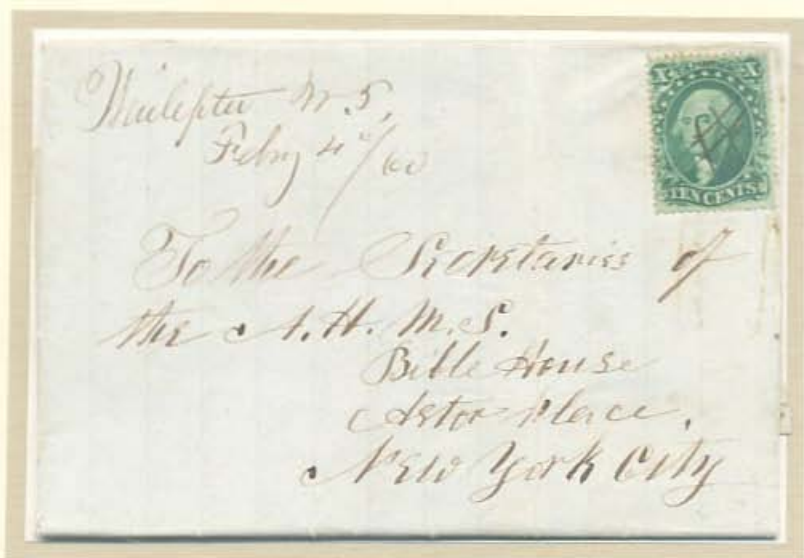 X X
W. T.
Feby 4th/60
TEN CENTS
To the Secretaries of
the A. H. M. S.
Bible House
Astor Place.
New York City